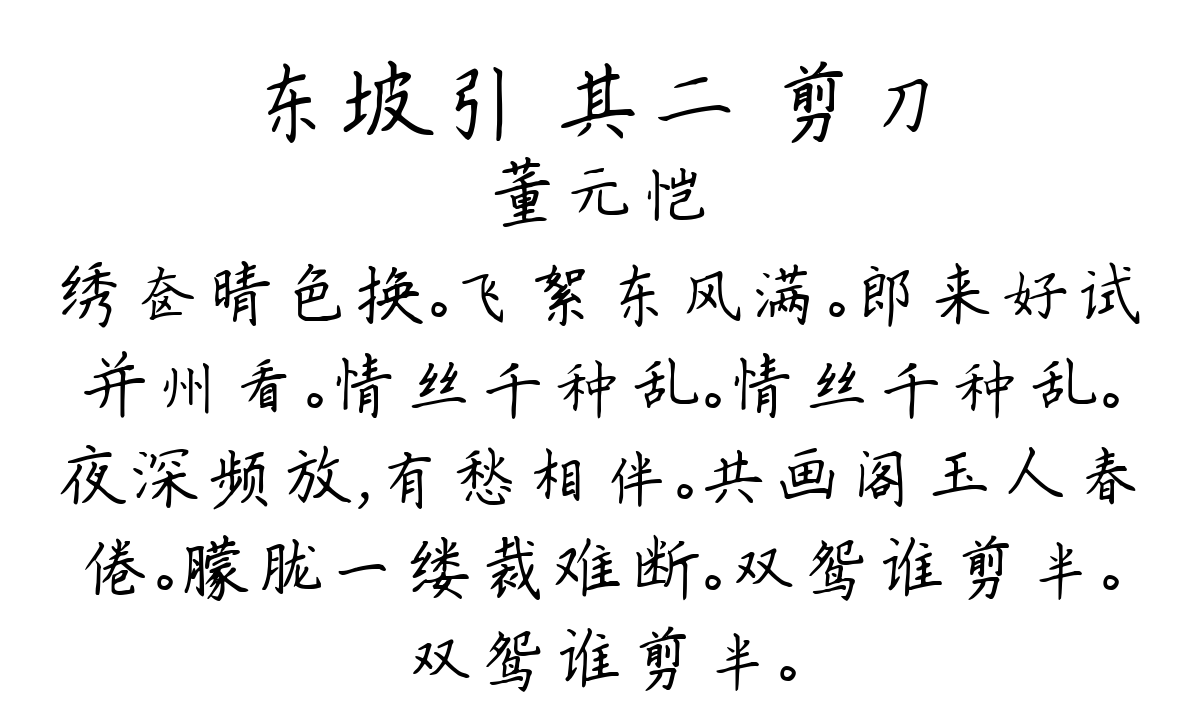 东坡引 其二 剪刀
董元恺
绣奁晴色换。飞絮东风满。郎来好试
并州看。情丝千种乱。情丝千种乱。
夜深频放,有愁相伴。共画阁玉人春
倦。朦胧一缕裁难断。双鸳谁剪半。
双鸳谁剪半。